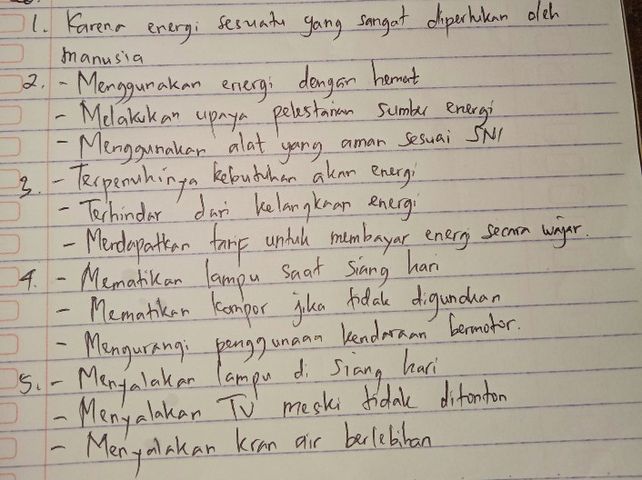 1. Karena energi sesuatu yang sangat diperlukan oleh
manusia
2. - Menggunakan energi dengan hemat
- Melakukan upaya pelestarian sumber energi
- Menggunakan alat yang aman sesuai SNI
3. - Terpenuhinya kebutuhan akan energi
- Terhindar dari kelangkaan energi
- Mendapatkan tarif untuk membayar energi secara wajar.
4. - Mematikan lampu saat siang hari
- Mematikan kompor jika tidak digunakan
- Mengurangi penggunaan kendaraan bermotor.
5. - Menyalakan lampu di siang hari
- Menyalakan TV meski tidak ditonton
- Menyalakan kran air berlebihan